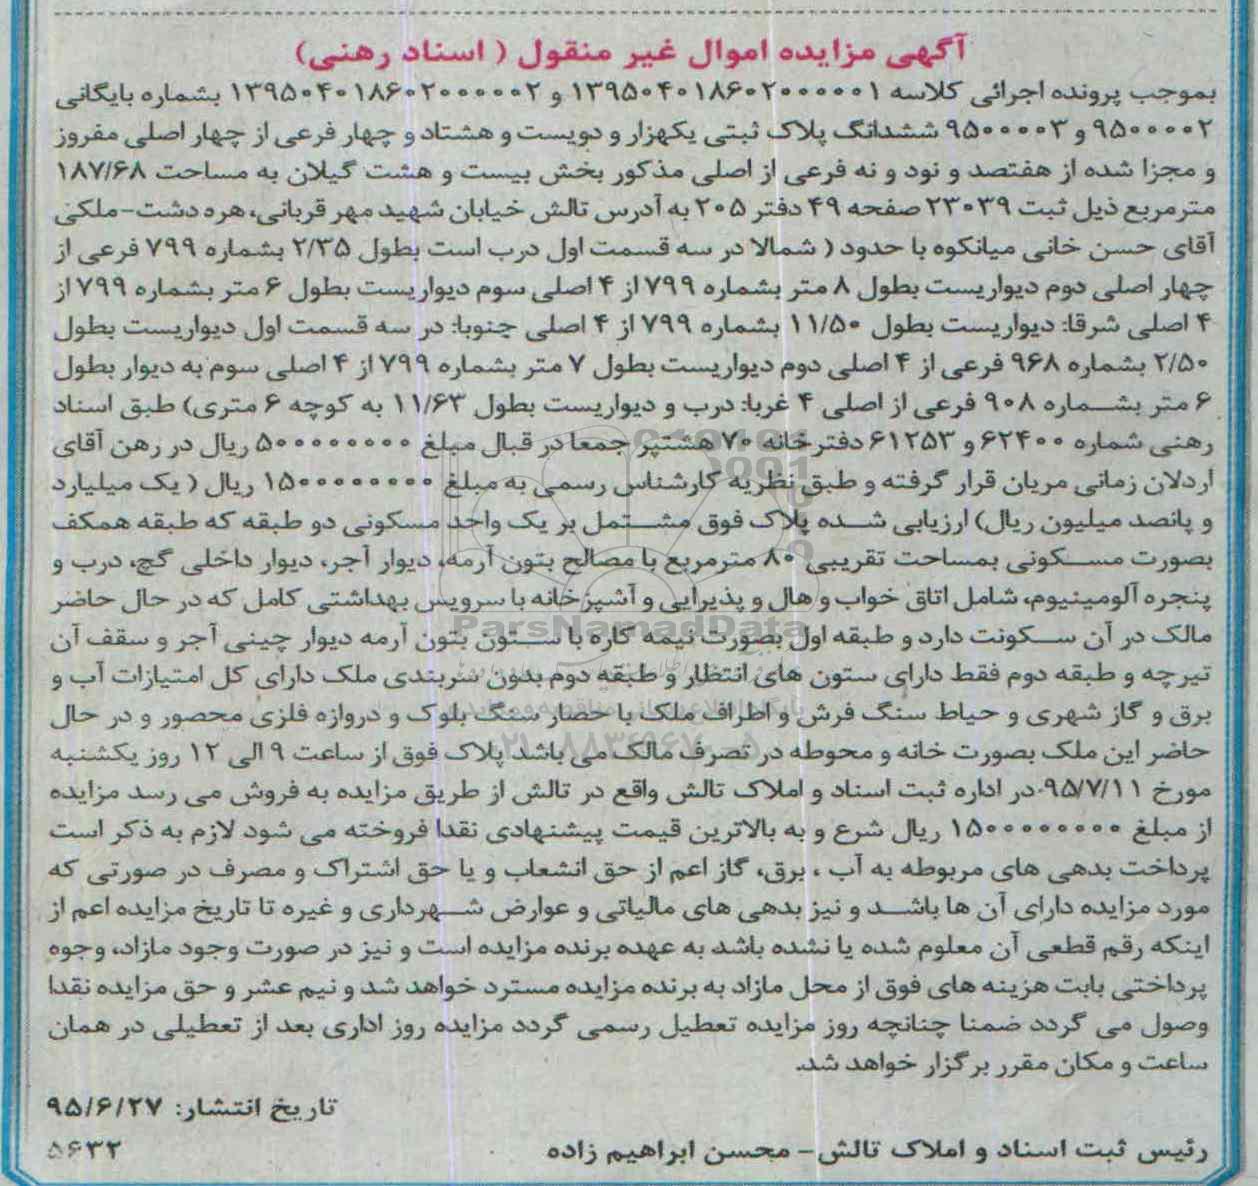 آگهی مزایده اموال غیر منقول ( اسناد رهنی)
بموجب پرونده اجرائی کلاسه ۱۳۹۵۰۴۰۱۸۶۰۲۰۰۰۰۰۱ و ۱۳۹۵۰۴۰۱۸۶۰۲۰۰۰۰۰۲ بشماره بایگانی
۹۵۰۰۰۰۲ و ۹۵۰۰۰۰۳ ششدانگ پلاک ثبتی یکهزار و دویست و هشتاد و چهار فرعی از چهار اصلی مفروز
و مجزا شده از هفتصد و نود و نه فرعی از اصلی مذکور بخش بیست و هشت گیلان به مساحت ۱۸۷/۶۸
مترمربع ذیل ثبت ۲۳۰۳۹ صفحه ۴۹ دفتر ۲۰۵ به آدرس تالش خیابان شهید مهر قربانی، هره دشت-ملکی
آقای حسن خانی میانکوه با حدود ( شمالا در سه قسمت اول درب است بطول ۲/۳۵ بشماره ۷۹۹ فرعی از
چهار اصلی دوم دیواریست بطول ۸ متر بشماره ۷۹۹ از ۴ اصلی سوم دیواریست بطول ۶ متر بشماره ۷۹۹ از
۴ اصلی شرقا: دیواریست بطول ۱۱/۵۰ بشماره ۷۹۹ از ۴ اصلی جنوبا: در سه قسمت اول دیواریست بطول
۲/۵۰ بشماره ۹۶۸ فرعی از ۴ اصلی دوم دیواریست بطول ۷ متر بشماره ۷۹۹ از ۴ اصلی سوم به دیوار بطول
۶ متر بشماره ۹۰۸ فرعی از اصلی ۴ غربا: درب و دیواریست بطول ۱۱/۶۳ به کوچه ۶ متری) طبق اسناد
رهنی شماره ۶۲۴۰۰ و ۶۱۲۵۳ دفترخانه ۷۰ هشتپر جمعا در قبال مبلغ ۵۰۰۰۰۰۰۰۰ ریال در رهن آقای
اردلان زمانی مریان قرار گرفته و طبق نظریه کارشناس رسمی به مبلغ ۱۵۰۰۰۰۰۰۰۰ ریال ( یک میلیارد
و پانصد میلیون ریال) ارزیابی شده پلاک فوق مشتمل بر یک واحد مسکونی دو طبقه که طبقه همکف
بصورت مسکونی بمساحت تقریبی ۸۰ مترمربع با مصالح بتون آرمه، دیوار آجر، دیوار داخلی گچ، درب و
پنجره آلومینیوم، شامل اتاق خواب و هال و پذیرایی و آشپزخانه با سرویس بهداشتی کامل که در حال حاضر
مالک در آن سکونت دارد و طبقه اول بصورت نیمه کاره با ستون بتون آرمه دیوار چینی آجر و سقف آن
تیرچه و طبقه دوم فقط دارای ستون های انتظار و طبقه دوم بدون سربندی ملک دارای کل امتیازات آب و
برق و گاز شهری و حیاط سنگ فرش و اطراف ملک با حصار سنگ بلوک و دروازه فلزی محصور و در حال
حاضر این ملک بصورت خانه و محوطه در تصرف مالک می باشد پلاک فوق از ساعت ۹ الی ۱۲ روز یکشنبه
مورخ ۹۵/۷/۱۱ در اداره ثبت اسناد و املاک تالش واقع در تالش از طریق مزایده به فروش می رسد مزایده
از مبلغ ۱۵۰۰۰۰۰۰۰۰ ریال شرع و به بالاترین قیمت پیشنهادی نقدا فروخته می شود لازم به ذکر است
پرداخت بدهی های مربوطه به آب ، برق، گاز اعم از حق انشعاب و یا حق اشتراک و مصرف در صورتی که
مورد مزایده دارای آن ها باشد و نیز بدهی های مالیاتی و عوارض شهرداری و غیره تا تاریخ مزایده اعم از
اینکه رقم قطعی آن معلوم شده یا نشده باشد به عهده برنده مزایده است و نیز در صورت وجود مازاد، وجوه
پرداختی بابت هزینه های فوق از محل مازاد به برنده مزایده مسترد خواهد شد و نیم عشر و حق مزایده نقدا
وصول می گردد ضمنا چنانچه روز مزایده تعطیل رسمی گردد مزایده روز اداری بعد از تعطیلی در همان
ساعت و مکان مقرر برگزار خواهد شد.
تاریخ انتشار: ۹۵/۶/۲۷
رئیس ثبت اسناد و املاک تالش- محسن ابراهیم زاده
۵۶۳۲
ParsNamadData